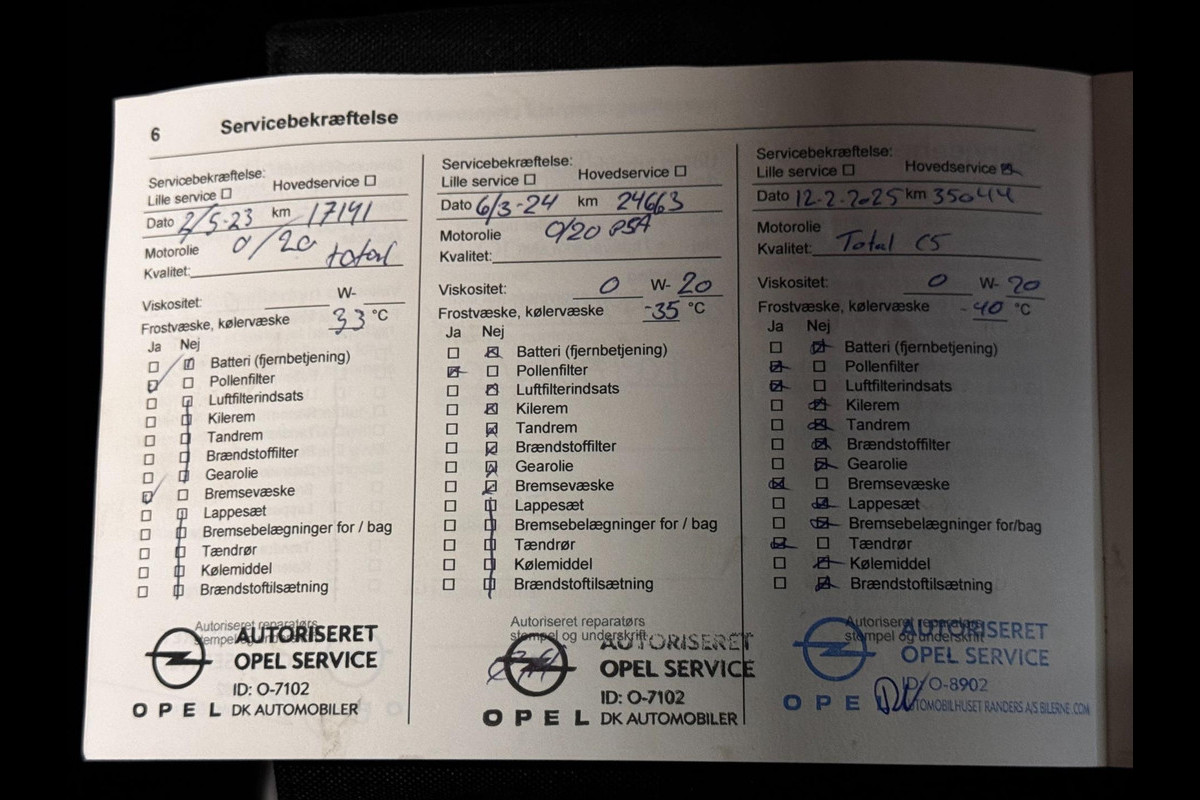 6 Servicebekræftelse
Servicebekræftelse:
Lille service ☐ Hovedservice ☐
Dato 2/5-23 km 17141
Motorolie 0/20
Kvalitet: total
Viskositet: W-
Frostvæske, kølervæske 33 °C
Ja Nej
Batteri (fjernbetjening)
Pollenfilter
Luftfilterindsats
Kilerem
Tandrem
Brændstoffilter
Gearolie
Bremsevæske
Lappesæt
Bremsebelægninger for / bag
Tændrør
Kølemiddel
Brændstoftilsætning
Autoriseret reparatørs
stempel og underskrift
AUTORISERET
OPEL SERVICE
ID: O-7102
OPEL DK AUTOMOBILER
Servicebekræftelse:
Lille service ☐ Hovedservice ☐
Dato 6/3-24 km 24663
Motorolie 0/20 PSA
Kvalitet:
Viskositet: 0 W- 20
Frostvæske, kølervæske -35 °C
Ja Nej
Batteri (fjernbetjening)
Pollenfilter
Luftfilterindsats
Kilerem
Tandrem
Brændstoffilter
Gearolie
Bremsevæske
Lappesæt
Bremsebelægninger for / bag
Tændrør
Kølemiddel
Brændstoftilsætning
Autoriseret reparatørs
stempel og underskrift
AUTORISERET
OPEL SERVICE
ID: O-7102
OPEL DK AUTOMOBILER
Servicebekræftelse:
Lille service ☐ Hovedservice ☒
Dato 12-2-2025 km 35044
Motorolie
Kvalitet: Total C5
Viskositet: 0 W- 20
Frostvæske, kølervæske -40 °C
Ja Nej
Batteri (fjernbetjening)
Pollenfilter
Luftfilterindsats
Kilerem
Tandrem
Brændstoffilter
Gearolie
Bremsevæske
Lappesæt
Bremsebelægninger for/bag
Tændrør
Kølemiddel
Brændstoftilsætning
Autoriseret reparatørs
stempel og underskrift
AUTORISERET
OPEL SERVICE
ID: O-8902
OPEL AUTOMOBILHUSET RANDERS A/S BILERNE.COM